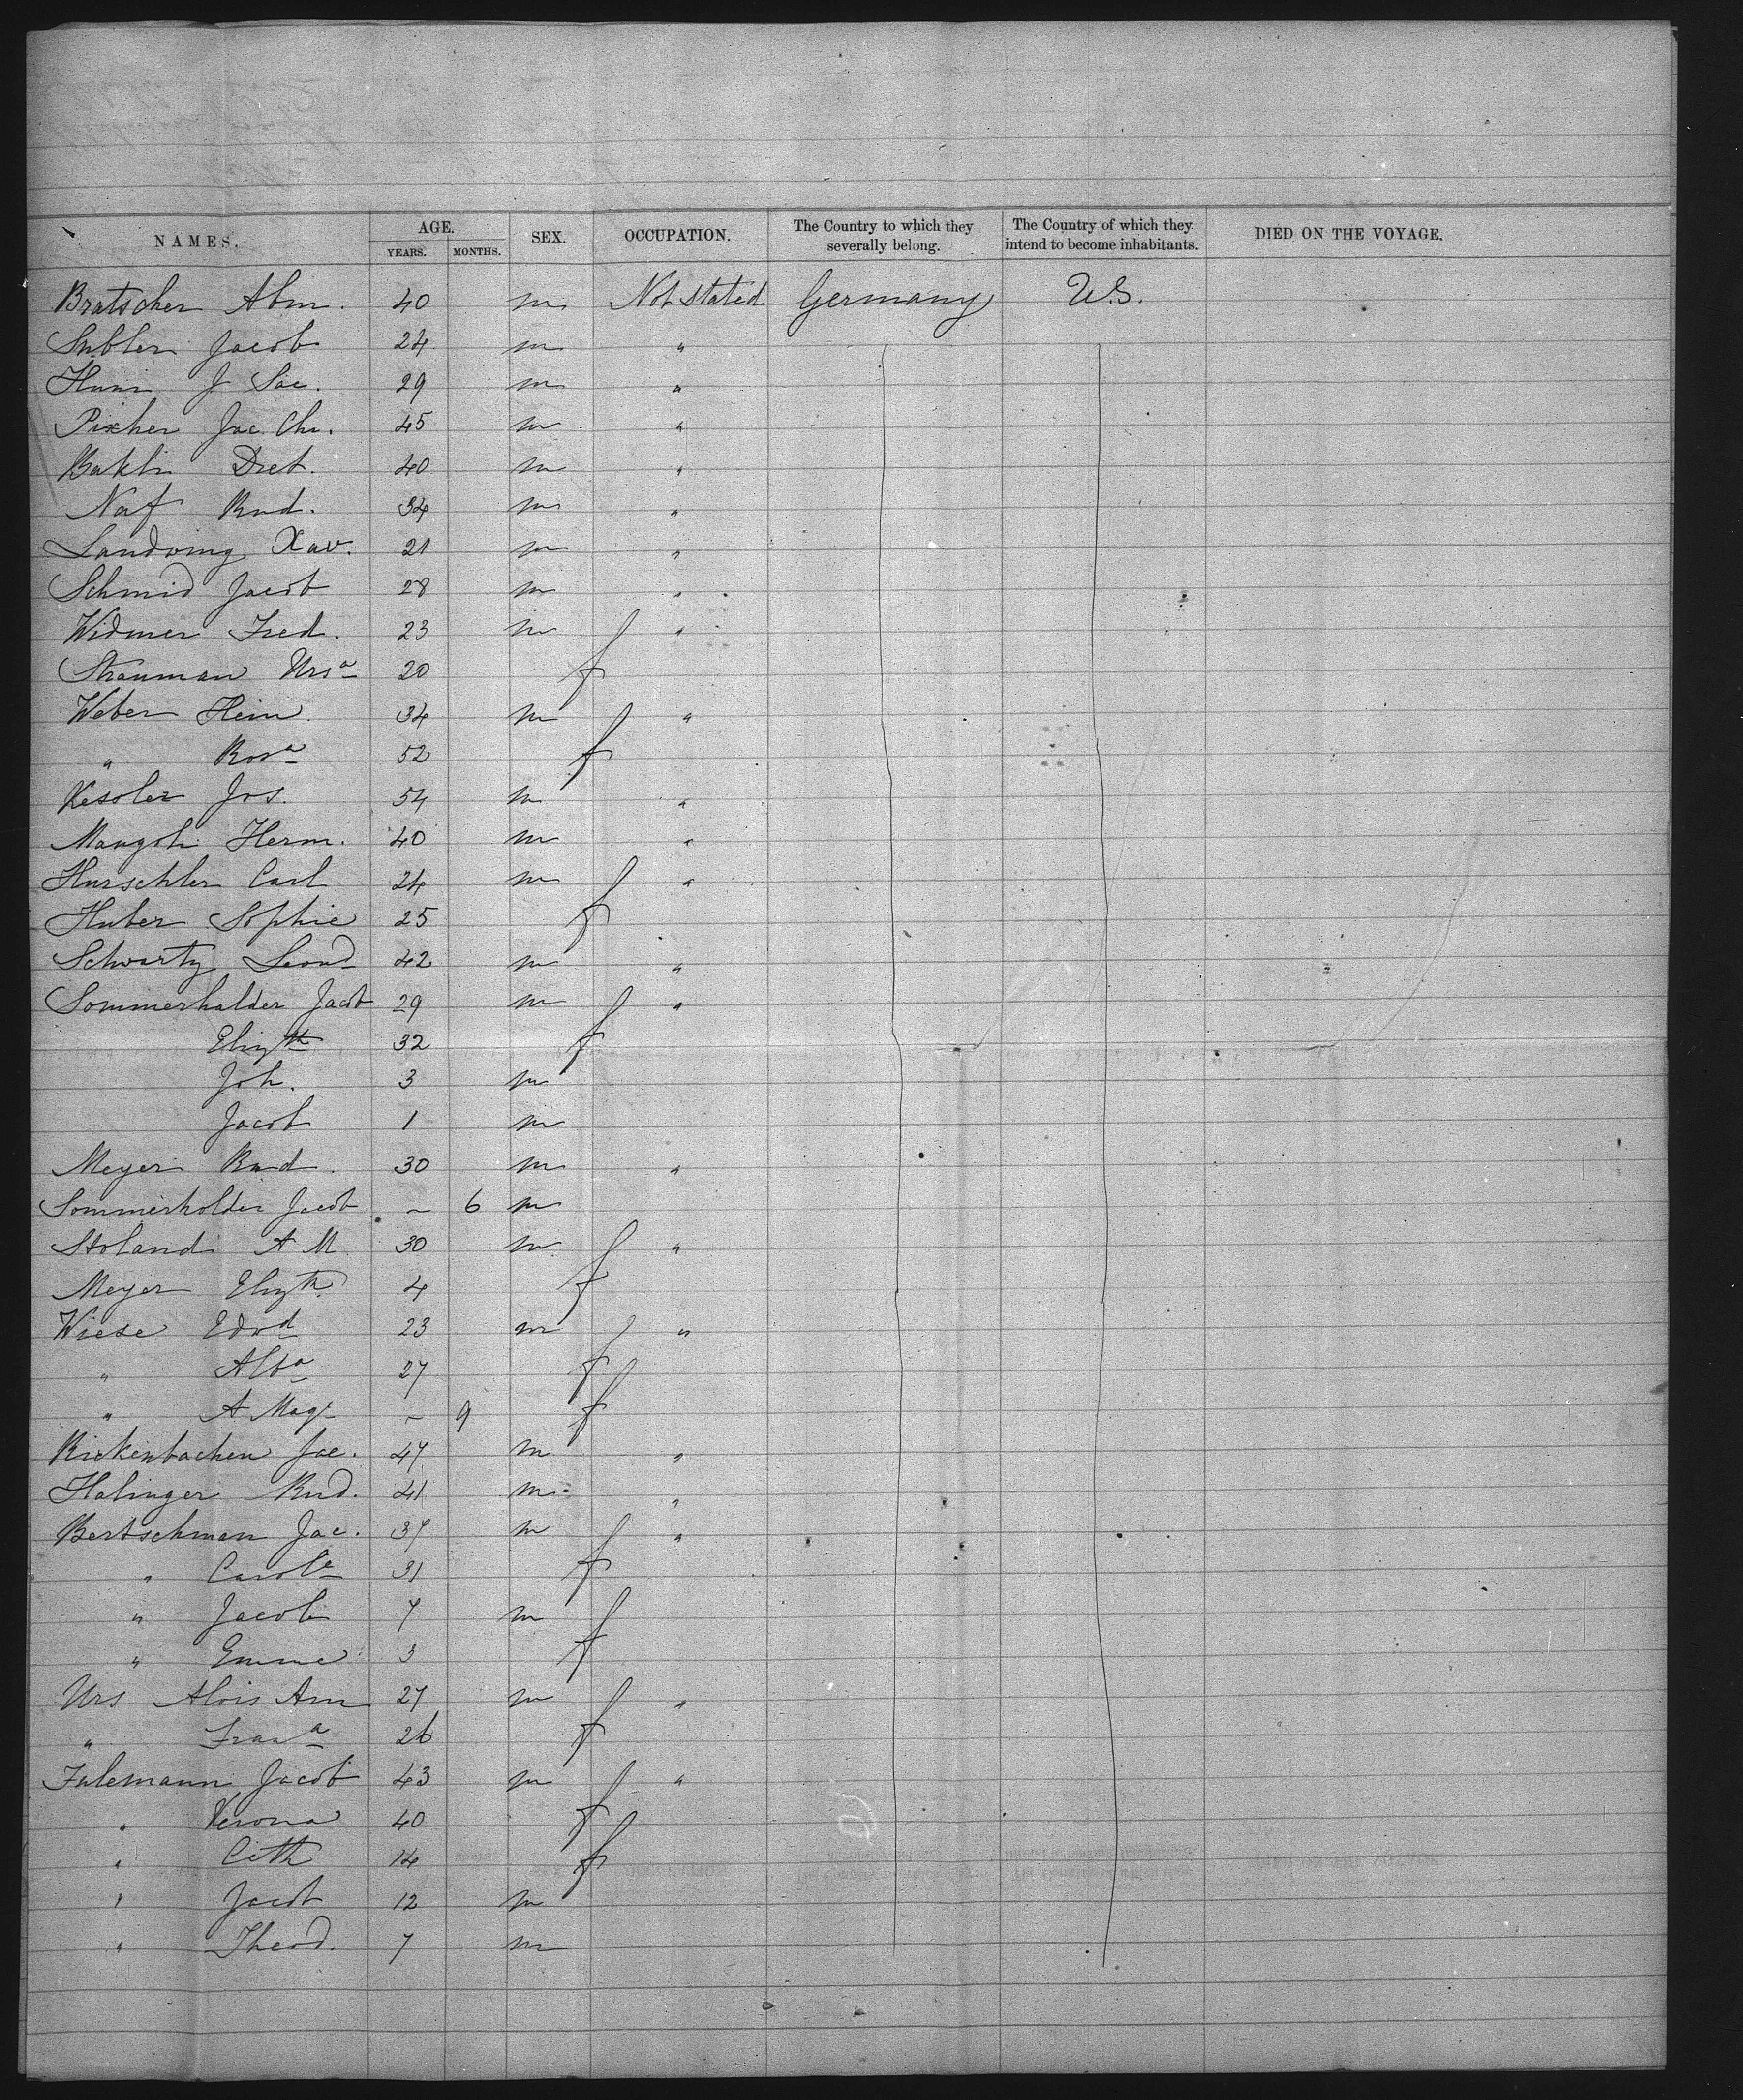 NAMES. AGE. SEX. OCCUPATION. The Country to which they severally belong. The Country of which they intend to become inhabitants. DIED ON THE VOYAGE.
YEARS. MONTHS.
Bratscher Abm. 40 m Not stated Germany U.S.
Subler Jacob 24 m "
Huni J Sac. 29 m "
Pixher Jac Ch. 45 m "
Bakli Diet. 40 m "
Naf Rud. 34 m "
Landwing Xav. 21 m "
Schmid Jacob 28 m "
Widmer Fred. 23 m "
Strauman Ursa 20 f
Weber Hein 34 m "
" Rosa 52 f
Kessler Jos. 54 m "
Mangoli Herm. 40 m "
Hurschler Carl 24 m "
Huber Sophie 25 f
Schwartz Leond 42 m "
Sommerhalder Jacob 29 m "
Elizth 32 f
Joh. 3 m
Jacob 1 m
Meyer Rud. 30 m "
Sommerholder Jacob ~ 6 m
Stoland A M 30 m "
Meyer Elizth 4 f
Wiese Edwd 23 m "
" Alba 27 f
" A Mag ~ 9 f
Rickenbacher Jac. 47 m "
Halinger Rud. 41 m "
Bertschman Jac. 37 m "
" Carole 31 f
" Jacob 7 m
" Emma 3 f
Urs Alois Am 27 m "
" Frana 26 f
Fulemann Jacob 43 m "
" Verona 40 f
" Cith 14 f
" Jacob 12 m
" Theod. 7 m